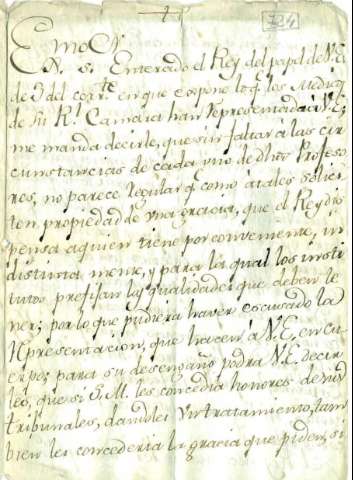 324
Emo Sr
S. Enterado el Rey del papel de V.E.
de 3 del corrte. en que expone lo q.e los Medicos
de su Rl. Camara han representado a V.E.
me manda decirle, que sin faltar à las cir
cunstancias de cada uno de dhos Profeso
res, no parece regular q.e como à tales solici
ten propiedad de una gracia, que el Rey dis
pensa a quien tiene por conveniente, in
distinta mente, y para la qual los insti
tutos prefijan las qualidades que deben te
ner; por lo que pudiera haver escusado la
Representacion, que hacen à V.E. en Cu
erpo; para su desengaño podra V.E. decir
les, que si S.M. les concedia honores de
tribunales, dandoles un tratamiento, tam
bien les concederia la gracia que piden, si